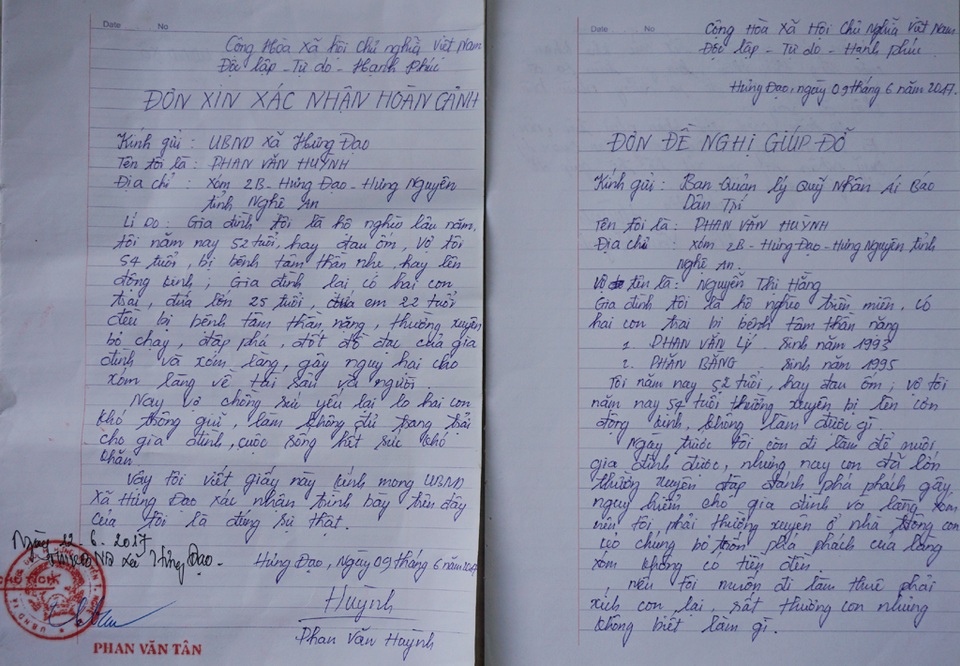 Date No
Cộng Hòa Xã hội Chủ nghĩa Việt Nam
Độc lập - Tự do - Hạnh Phúc
ĐƠN XIN XÁC NHẬN HOÀN CẢNH
Kính gửi : UBND Xã Hưng Đạo
Tên tôi là : PHAN VĂN HUỲNH
Địa chỉ : Xóm 2B - Hưng Đạo - Hưng Nguyên
tỉnh Nghệ An
Lí Do : Gia đình tôi là hộ nghèo lâu năm,
tôi năm nay 52 tuổi, hay đau ốm, vợ tôi
54 tuổi, bị bệnh tâm thần nhẹ, hay lên
động kinh ; Gia đình lại có hai con
trai, đứa lớn 25 tuổi, đứa em 22 tuổi
đều bị bệnh tâm thần nặng, thường xuyên
bỏ chạy, đập phá, đốt đồ đạc của gia
đình và xóm làng, gây nguy hại cho
xóm làng về tài sản và người.
Nay vợ chồng sức yếu lại lo hai con
khó trông giữ, làm không đủ trang trải
cho gia đình, cuộc sống hết sức khó
khăn.
Vậy tôi viết giấy này kính mong UBND
Xã Hưng Đạo xác nhận trình bày trên đây
của tôi là đúng sự thật.
Ngày 12.6.2017
Xã Hưng Đạo.
Hưng Đạo, Ngày 09 tháng 6 năm 2017
CHỦ TỊCH
Huỳnh
Phan Văn Huỳnh
PHAN VĂN TÂN
Date No
Cộng Hòa Xã Hội Chủ Nghĩa Việt Nam
Độc lập - Tự do - Hạnh phúc
Hưng Đạo, Ngày 09 tháng 6 năm 2017.
ĐƠN ĐỀ NGHỊ GIÚP ĐỠ
Kính gửi : Ban Quản lý Quỹ Nhân Ái Báo
Dân Trí
Tên tôi là : PHAN VĂN HUỲNH
Địa chỉ : xóm 2B - Hưng Đạo - Hưng Nguyên tỉnh
Nghệ An.
Vợ tên là : Nguyễn Thị Hằng
Gia đình tôi là hộ nghèo triền miên, có
hai con trai bị bệnh tâm thần nặng
1. PHAN VĂN LÝ. Sinh năm 1993
2. PHAN BẰNG sinh năm 1995
Tôi năm nay 52 tuổi, hay đau ốm ; vợ tôi
năm nay 54 tuổi thường xuyên bị lên cơn
động kinh, không làm được gì
Ngày trước tôi còn đi làm để nuôi
gia đình được, nhưng nay con đã lớn
thường xuyên đập đánh phá phách gây
nguy hiểm cho gia đình và làng xóm
nên tôi phải thường xuyên ở nhà trông con
kẻo chúng bỏ trốn phá phách của làng
xóm không có tiền đền.
nếu tôi muốn đi làm thuê phải
xích con lại, rất thương con nhưng
không biết làm gì.